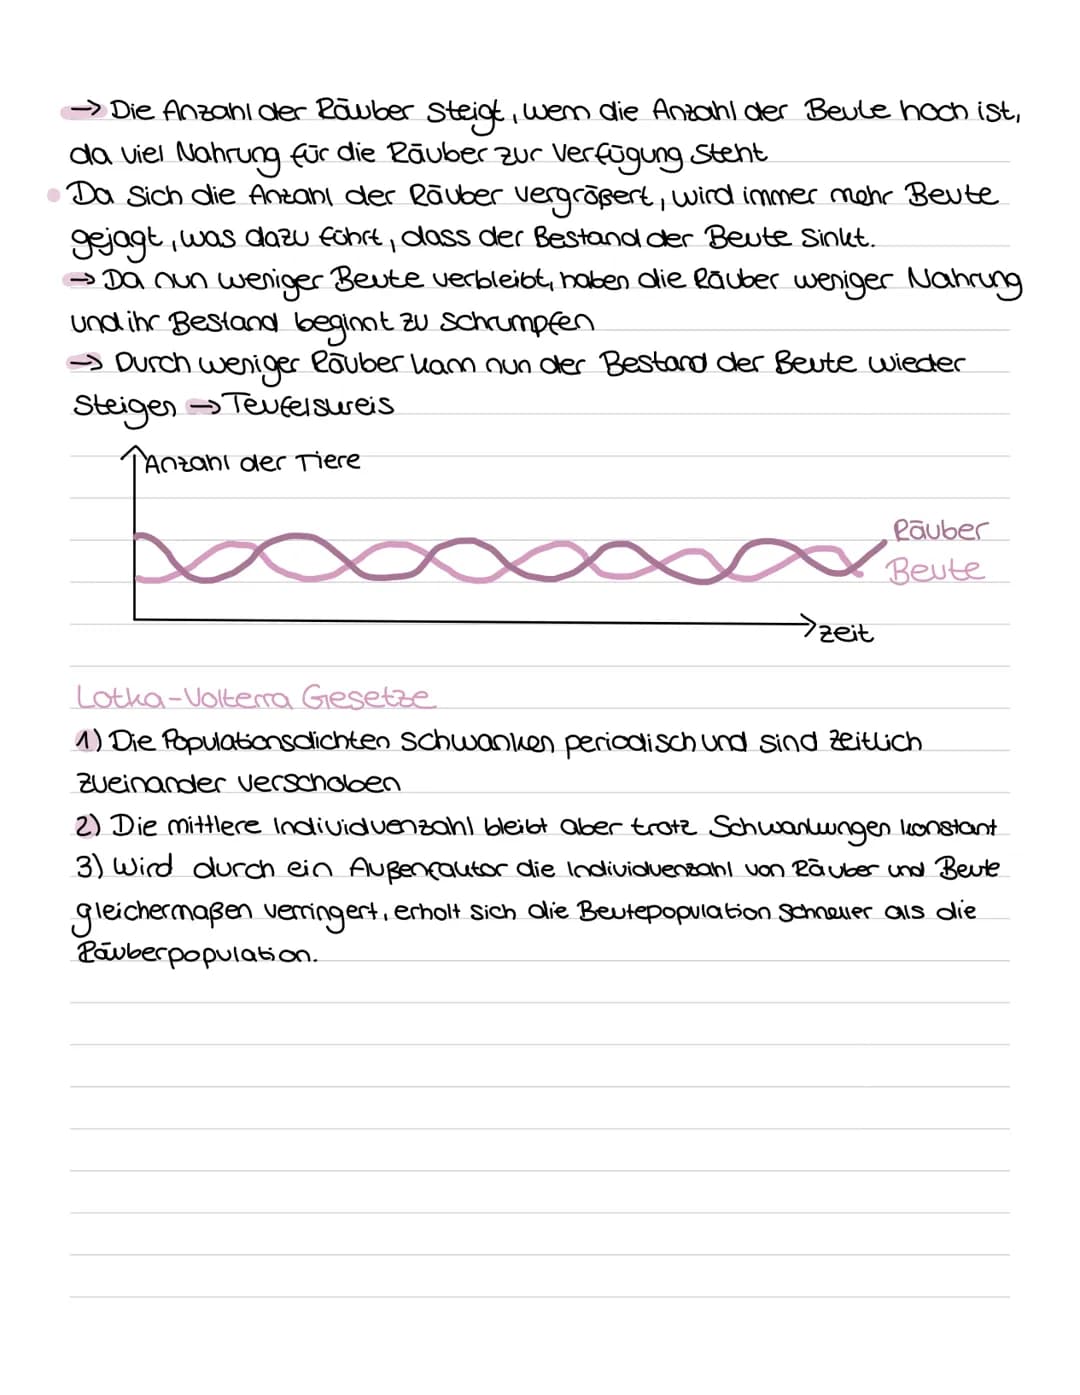 → Die Anzahl der Räuber steigt, wenn die Anzahl der Beute hoch ist,
da viel Nahrung für die Räuber zur Verfügung steht
• Da sich die Anzahl der Räuber vergrößert, wird immer mehr Beute
gejagt, was dazu führt, dass der Bestand der Beute sinkt.
→ Da nun weniger Beute verbleibt, haben die Räuber weniger Nahrung
und ihr Bestand beginnt zu schrumpfen
→ Durch weniger Räuber kann nun der Bestand der Beute wieder
steigen → Teufelskreis
Anzahl der Tiere
Räuber
Beute
zeit
Lotka-Volterra Gesetze
1) Die Populationsdichten schwanken periodisch und sind zeitlich
zueinander verschoben
2) Die mittlere Individuenzahl bleibt aber trotz Schwankungen konstant
3) Wird durch ein Außenfaktor die Individuenzahl von Räuber und Beute
gleichermaßen verringert, erholt sich die Beutepopulation schneller als die
Räuberpopulation.